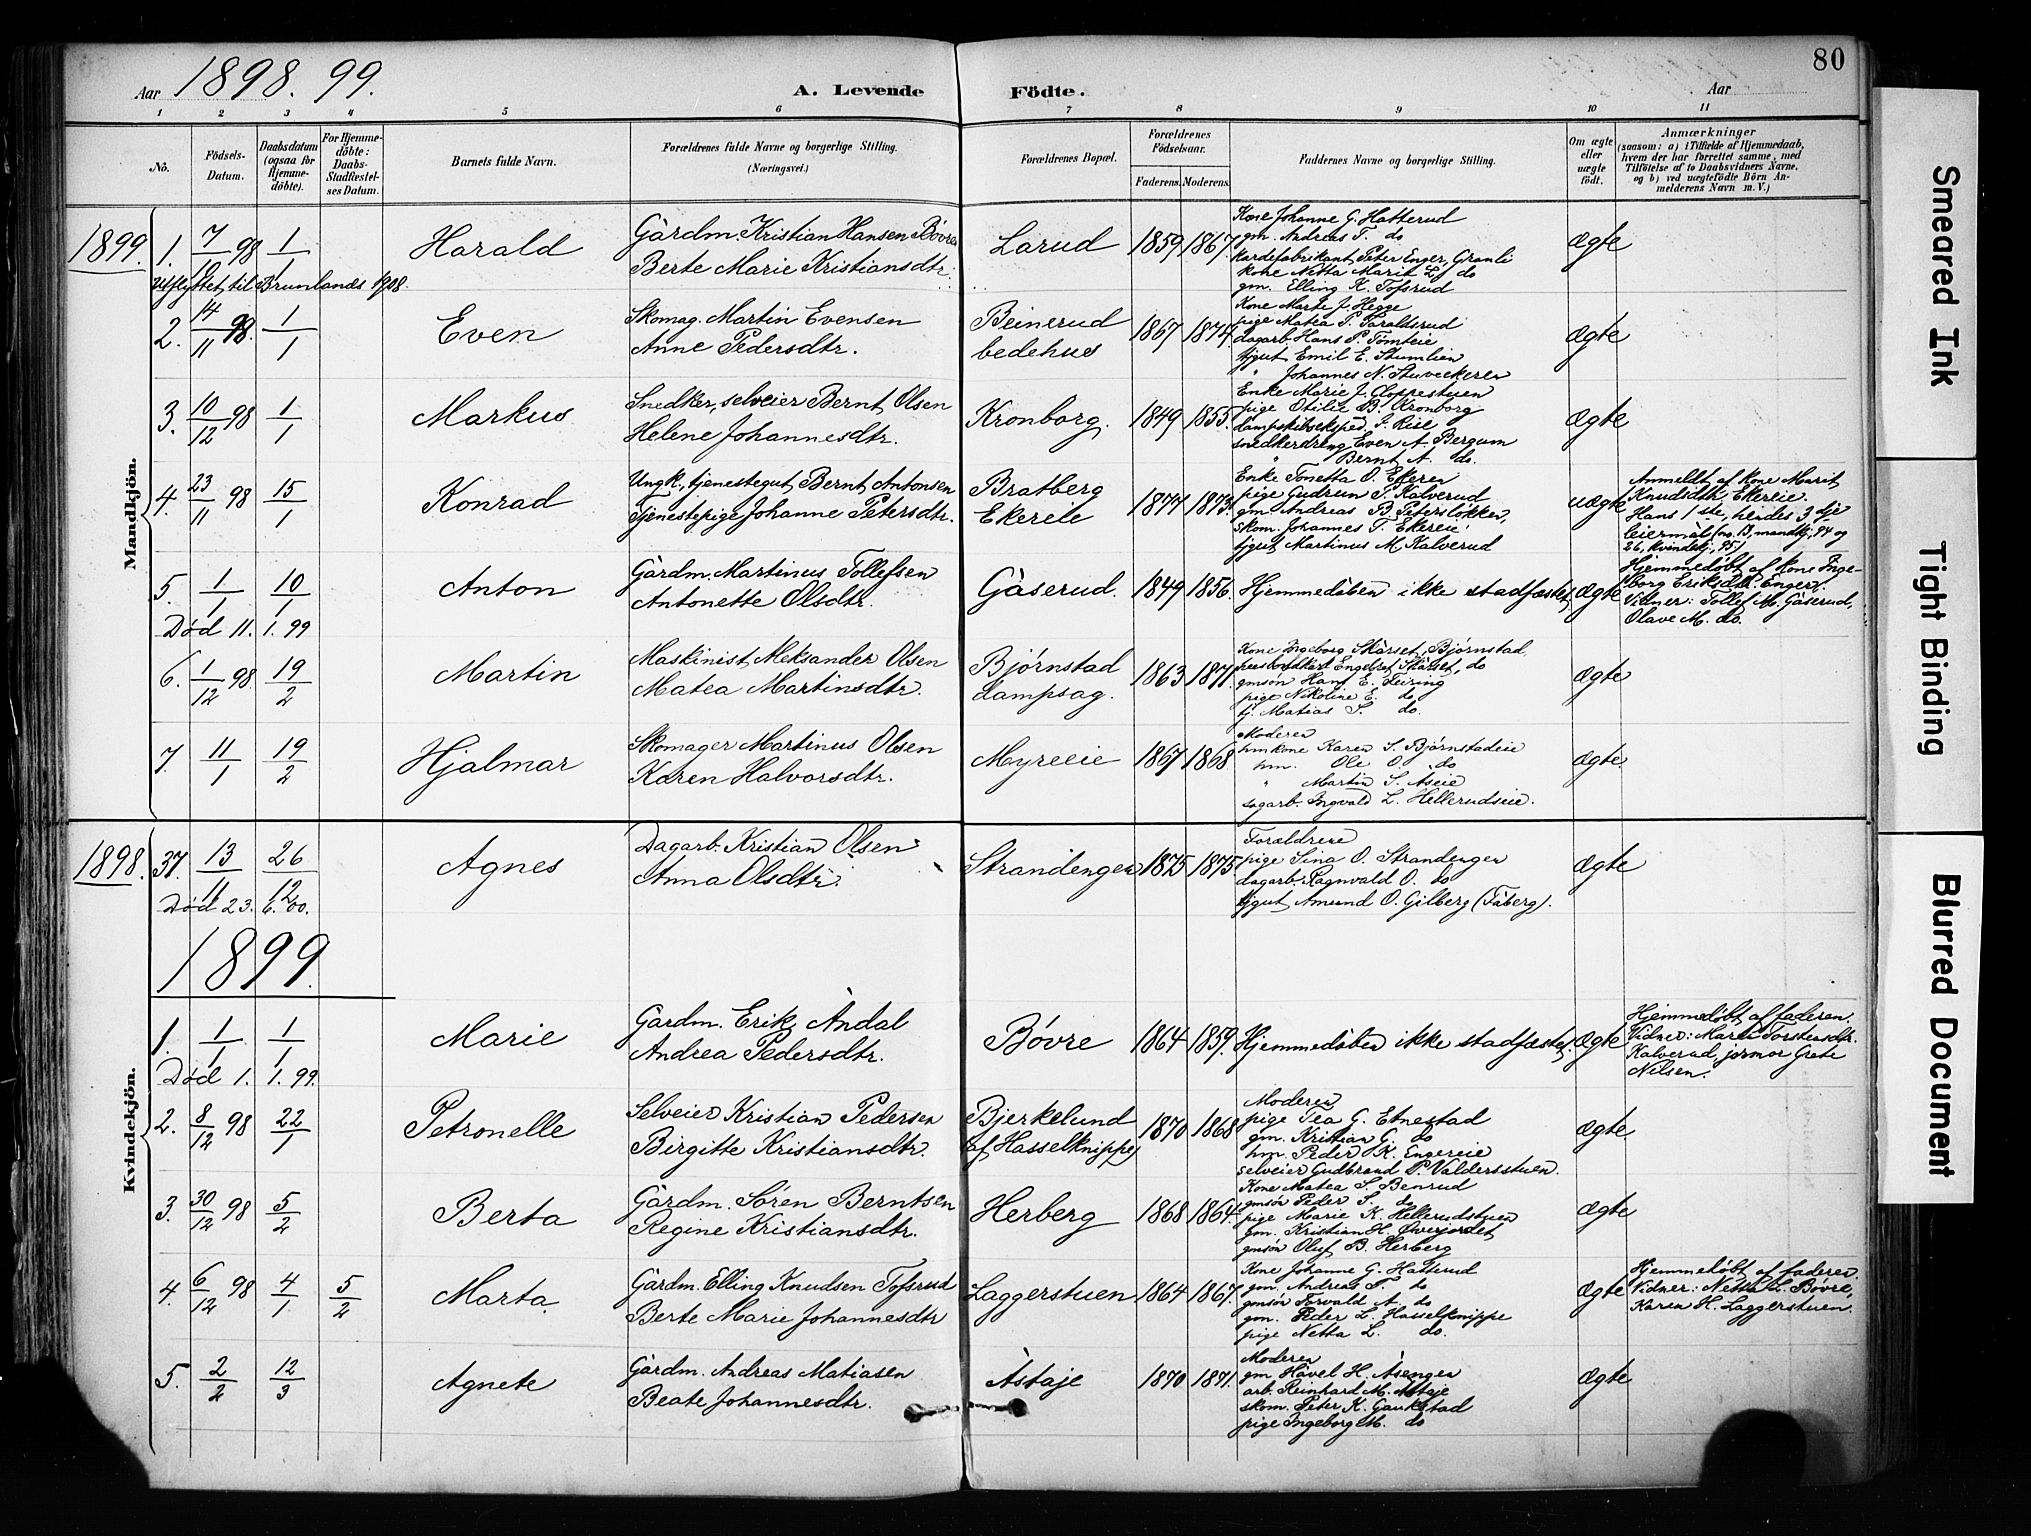 80
Aar 1898. 99.
A. Levende Födte.
Aar
1 2 3 4 5 6 7 8 9 10 11
No.
Födsels-Datum.
Daabsdatum (ogsaa for Hjemmedöbte).
For Hjemmedöbte: Daabs-Stadfæstelses Datum.
Barnets fulde Navn.
Forældrenes fulde Navne og borgerlige Stilling. (Næringsvei.)
Forældrenes Bopæl.
Forældrenes Födselsaar.
Faderens. Moderens.
Faddernes Navne og borgerlige Stilling.
Om ægte eller uægte födt.
Anmærkninger
(saasom: a) i Tilfælde af Hjemmedaab, hvem der har forrettet samme, med Tilföielse af to Daabsvidners Navne, og b) ved uægtefödte Börn Anmelderens Navn m. V.)
Mandkjön.
1899. 1. 7/ 98 1/1 Harald
Gårdm. Kristian Hansen Bøvre
Berte Marie Kristiansdtr.
Larud 1859 1867.
Kone Johanne G. Hatterud
gm. Andreas T. do
Kardefabrikant Peter Enger, Granli
kone Netta Marie L. do
gm. Elling K. Tofsrud
Ægte
Utflyttet til Brunlanæs 1908.
2. 14/11 98. 1/1 Even
Skomag. Martin Evensen
Anne Pedersdtr.
Beinerud
bedehus
1867 1874.
Kone Marte J. Hegge
pige Matea P. Taraldsrud
dagarb. Hans P. Tømteie
tjgut Emil E. Stumlien
" Johannes N. Stuveekeren
Ægte
3. 10/12 98 1/1 Markus
Snedker, selveier Bernt Olsen
Helene Johannesdtr.
Kronborg. 1849 1855.
Enke Marie J. Gloppestuen
pige Otilie B. Kronborg
dampskibseksped. J. Riie
snedkerdreng Even A. Bergum
" Bernt A. do.
Ægte
4. 23/11 98 15/1 Konrad
Ungk., tjenestegut Bernt Antonsen
Tjenestepige Johanne Petersdtr.
Bratberg
Ekereie
1877 1873.
Enke Tonetta O. Ekeren
pige Gudrun P. Kalverud
gm. Andreas B. Petersløkken,
skom. Johannes T. Ekereie
tjgut Martinus M. Kalverud
uægte
Anmeldt af kone Marit
Knudsdtr. Ekereie.
Hans 1ste, hendes 3dje
leiermål (no. 13, mandkj. 94 og
26, kvindekj. 95)
5. 1/1 10/1 Anton
Død 11. 1. 99
Gårdm. Martinus Tollefsen
Antonette Olsdtr.
Gåserud. 1849 1856.
Hjemmedåben ikke stadfæstet.
Ægte
Hjemmedøbt af kone Inge-
borg Eriksdtr. Enger.
Vidner: Tollef M. Gåserud,
Olave M. do.
6. 1/12 98. 19/2 Martin
Maskinist Aleksander Olsen
Matea Martinsdtr.
Bjørnstad
dampsag.
1863 1871.
Kone Ingeborg Skårset, Bjørnstad
Engebret Skårset, do
gmsøn Hans E. Feiring
pige Nikoline E. do
tj. Matias S. do.
Ægte
7. 11/1 19/2 Hjalmar
Skomager Martinus Olsen
Karen Halvorsdtr.
Myreeie 1867 1868
Moderen
hmkone Karen S. Bjørnstadeie
hm. Ole O. do
" Martin S. Aseie
sagarb. Ingvald L. Hellerudseie.
Ægte.
Kvindekjön.
1898. 37. 13/11 26/12 Agnes
Død 23. 6. 00.
Dagarb. Kristian Olsen
Anna Olsdtr.
Strandengen 1875 1875.
Forældrene
pige Sina O. Strandengen
dagarb. Ragnvald O. do
tjgut Amund O. Gilberg (Fåberg).
Ægte
1899.
1. 1/1 1/1 Marie
Død 1. 1. 99.
Gårdm. Erik Åndal
Andrea Pedersdtr.
Bøvre 1864 1859.
Hjemmedåben ikke stadfæstet.
Ægte
Hjemmedøbt af faderen.
Vidner: Marte Torstensdtr.
Kalverud, jormor Grete
Nilsen.
2. 8/12 98 22/1 Petronelle
Selveier Kristian Pedersen
Birgitte Kristiansdtr.
Bjerkelund
af Hasselknippe
1870 1868
Moderen
pige Tea G. Etnestad
gm. Kristian G. do
hm. Peder K. Engereie
selveier Gudbrand P. Valdersstuen.
Ægte
3. 30/12 98 5/2 Berta
Gårdm. Søren Berntsen
Regine Kristiansdtr.
Herberg 1868 1864.
Kone Matea S. Benrud
gmsøn Peder S. do
pige Marie K. Hellerudstuen
gm. Kristian H. Øverjordet
gmsøn Oluf B. Herberg
Ægte
4. 6/12 98 4/1 5/2 Marta
Gårdm. Elling Knudsen Tofsrud
Berte Marie Johannesdtr
Laggerstuen 1864 1867.
Kone Johanne G. Hatterud
gm. Andreas T. do
gmsøn Torvald A. do
gm. Peder L. Hasselknippe
pige Netta L. do.
Ægte
Hjemmedøbt af faderen.
Vidner: Netta L. Bøvre,
Karen H. Laggerstuen.
5. 2/2 12/3 Agnete
Gårdm. Andreas Matiasen
Beate Johannesdtr.
Åstaje 1870 1871.
Moderen
gm Håvel H. Åsengen
arb. Reinhard M. Åstaje
skom. Peter K. Gaukstad
pige Ingeborg M. do
Ægte
Smeared Ink
Tight Binding
Blurred Document